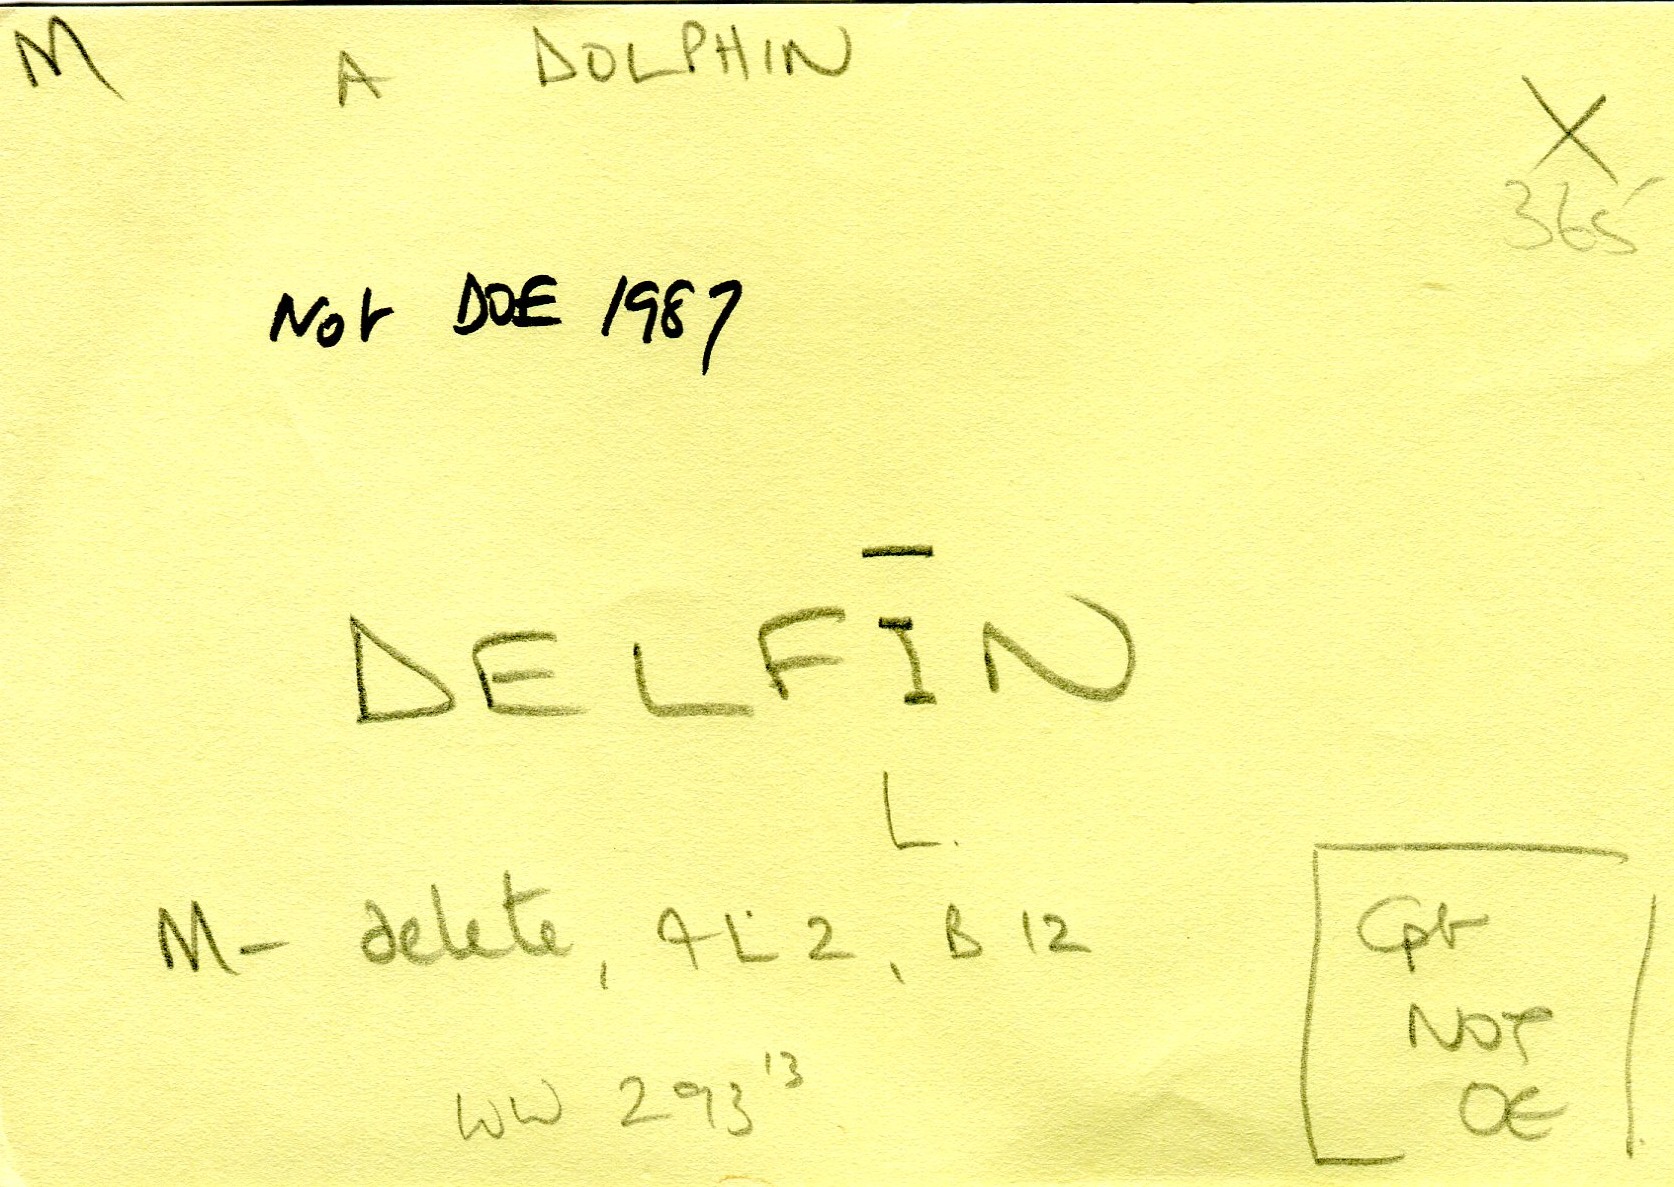 M A DOLPHIN
X
365
Not DOE 1987
DELFĪN
L.
M- delete, AL 2, B 12
WW 293¹³
Cpt
NOT
OE